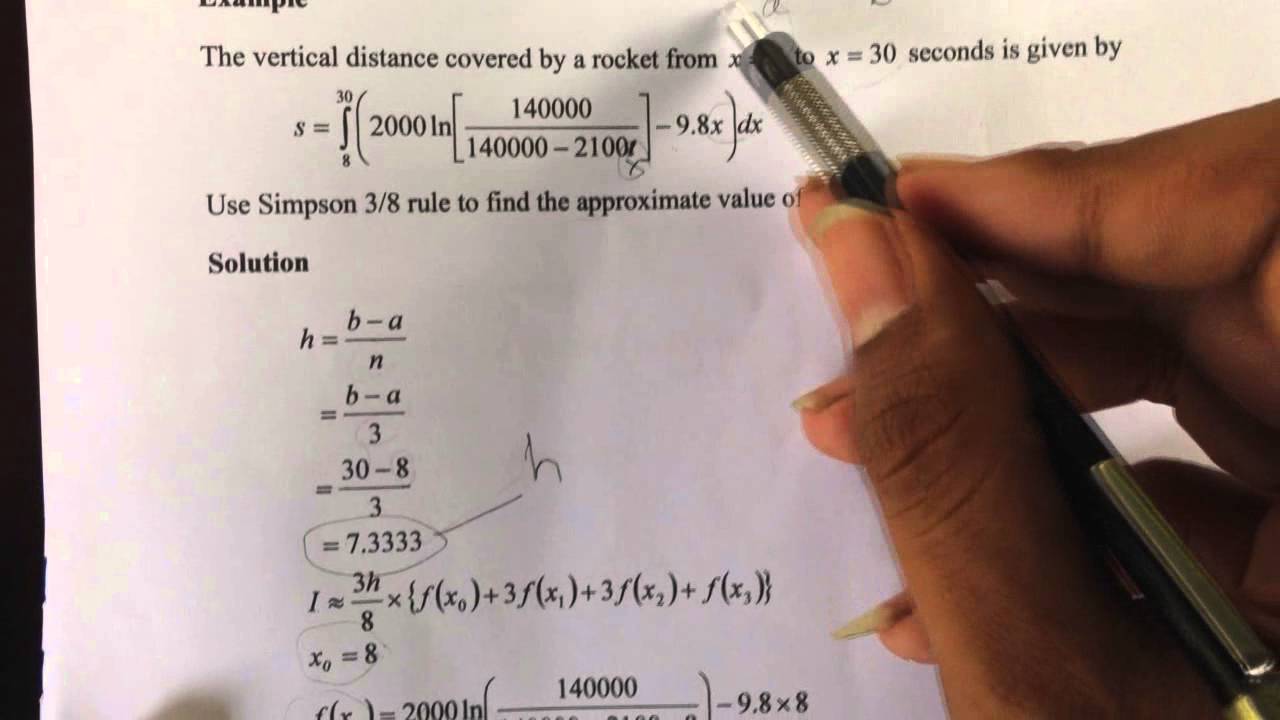 Example
The vertical distance covered by a rocket from x = to x = 30 seconds is given by
s = ∫₈³⁰ ( 2000 ln [ 140000 / 140000 − 2100t ] − 9.8x ) dx
x
Use Simpson 3/8 rule to find the approximate value of
Solution
h = b − a / n
= b − a / 3
= 30 − 8 / 3
h
= 7.3333
I ≈ 3h / 8 × {f(x₀) + 3f(x₁) + 3f(x₂) + f(x₃)}
x₀ = 8
f(x ) = 2000 ln ( 140000 / ) − 9.8 × 8